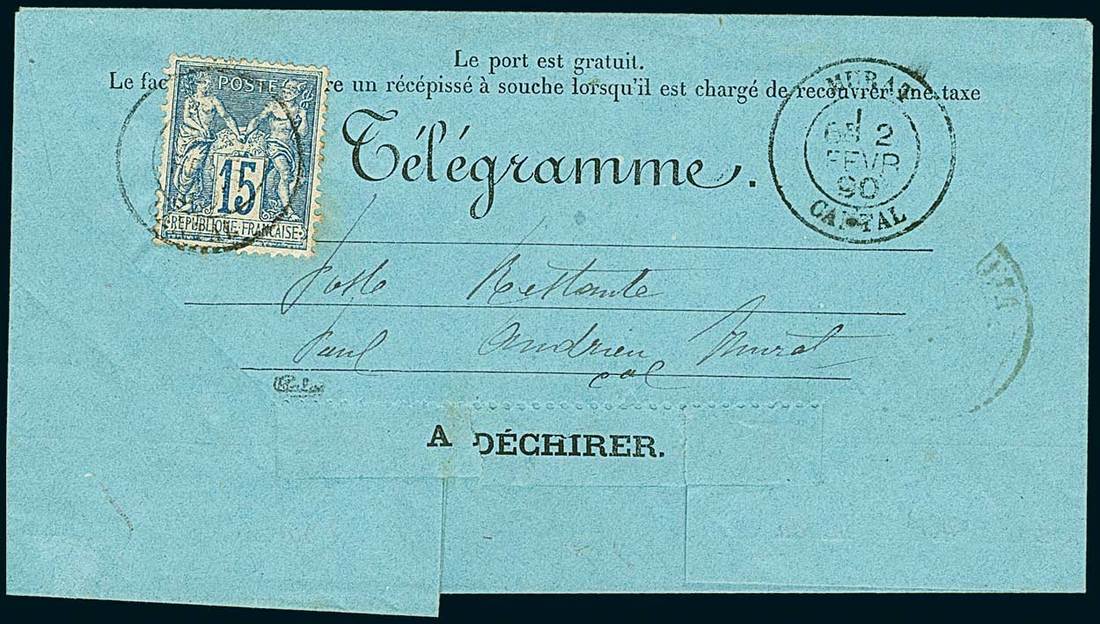 Le port est gratuit.
Le fac re un récépissé à souche lorsqu'il est chargé de recouvrer une taxe
POSTE
15
REPUBLIQUE FRANÇAISE
Télégramme.
MURAT
2
FEVR
90
CANTAL
Poste Restante
Paul Andrieu Murat
A DÉCHIRER.